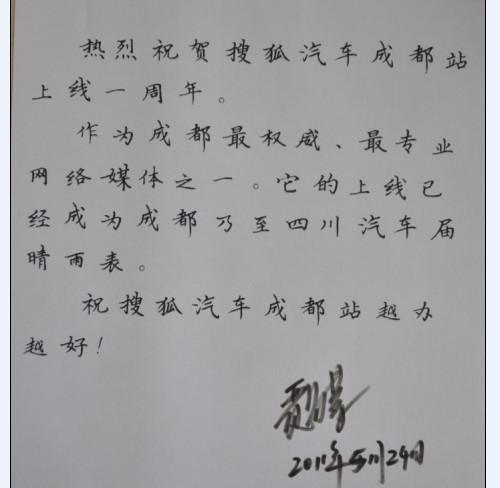 热烈祝贺搜狐汽车成都站
上线一周年。
作为成都最权威、最专业
网络媒体之一。它的上线已
经成为成都乃至四川汽车届
晴雨表。
祝搜狐汽车成都站越办
越好!
2011年5月29日